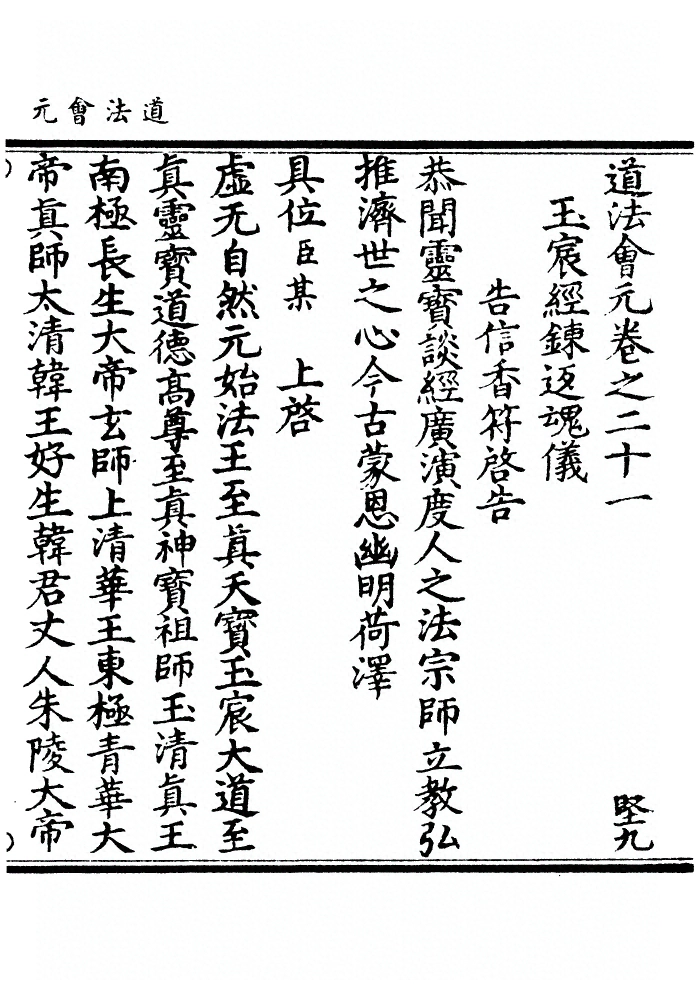 道法會元
道法會元卷之二十一 堅九
玉宸經鍊返魂儀
告信香符啓告
恭聞靈寶談經廣演度人之法宗師立教弘
推濟世之心今古蒙恩幽明荷澤
具位臣某 上啓
虛无自然元始法王至眞天寶玉宸大道至
眞靈寶道德高尊至眞神寶祖師玉清眞王
南極長生大帝玄師上清華王東極青華大
帝眞師太清韓王好生韓君丈人朱陵大帝